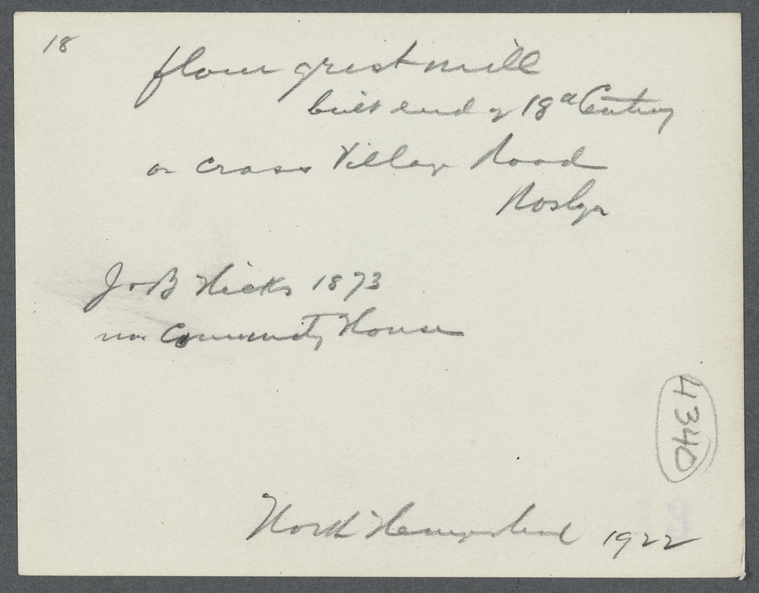 18
flour grist mill
built end of 18th Century
on cross Village Road
Roslyn
J & B Hicks 1873
now Community House
4340
North Hempstead 1922